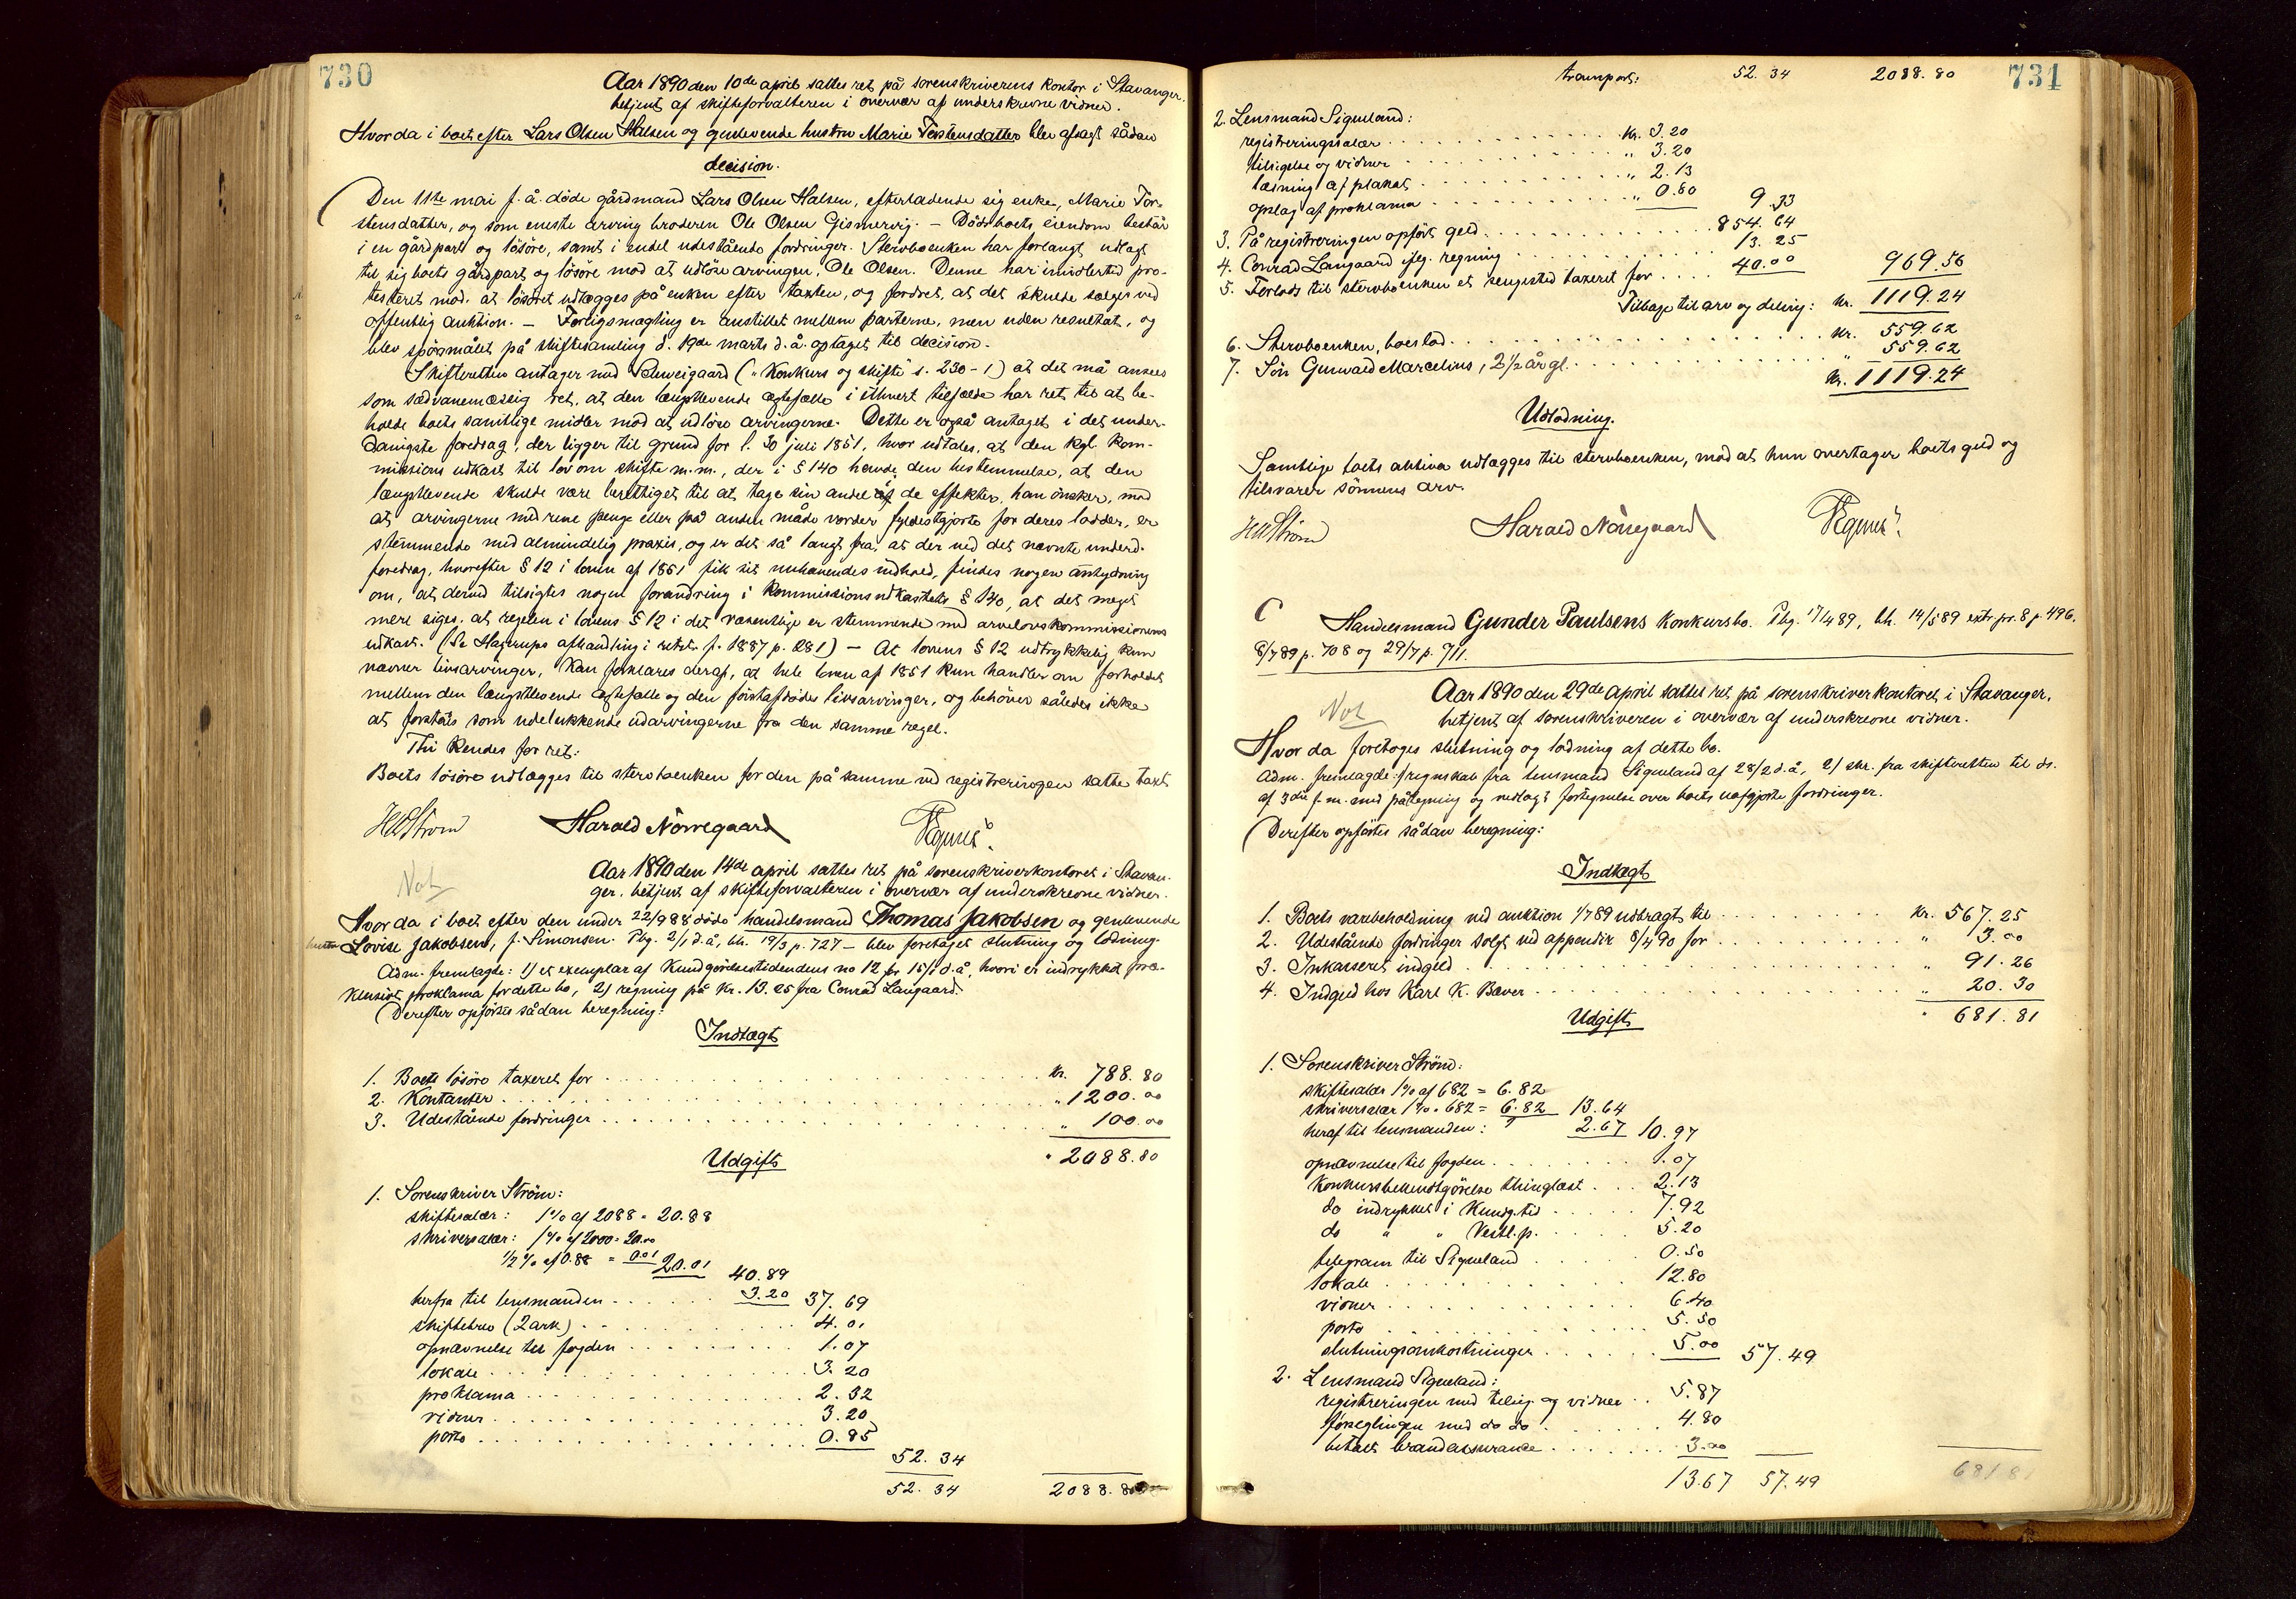 730
Aar 1890 den 10de april sattes ret på sorenskriverens kontor i Stavanger,
betjent af skifteforvalteren i overvær af underskrevne vidner.
Hvor da i boet efter Lars Olsen Halsen og genlevende hustru Marie Torstensdatter blev afsagt sådan
decision.
Den 11te mai f. å. døde gårdmand Lars Olsen Halsen, efterladende sig enke, Marie Tor-
stensdatter, og som eneste arving broderen Ole Olsen Gismervig. – Dödsboets eiendom består
i en gårdpart og lösöre, samt i endel udestående fordringer. Stervboenken har forlangt udlagt
til sig boets gårdpart og lösöre mod at udlöse arvingen, Ole Olsen. Denne har imidlertid pro-
testeret mod, at lösöret udlægges på enken efter taxten, og fordret, at det skulde sælges ved
offentlig auktion. – Forligsmægling er anstillet mellem parterne, men uden resultat, og
blev spörsmålet på skiftesamling d. 19de marts d. å. optaget til decision.
Skifteretten antager med Schweigaard („Konkurs og skifte" s. 230-1) at det må ansees
som sædvanemæssig ret, at den længstlevende ægtefælle i ethvert tilfælde har ret til at be-
holde boets samtlige midler mod at udlöse arvingerne. Dette er også antaget i det under-
danigste foredrag, der ligger til grund for l. 30 juli 1851, hvor udtales, at den kgl. kom-
missions udkast til lov om skifte m.m., der i § 140 havde den bestemmelse, at den
længstlevende skulde være berettiget til at tage sin andel af de effekter, han önsker, mod
at arvingerne med rene penge eller på anden måde vorder fyldestgjorte for deres lodder, er
stemmende med almindelig praxis, og er det så langt fra, at der ved det nævnte underd.
foredrag, hvorefter § 12 i loven af 1851 fik sit nuhavendes indhold, findes nogen antydning
om, at derved tilsigtes nogen forandring i kommissionsudkastets § 140, at det meget
mere siges, at regelen i lovens § 12 i det væsentlige er stemmende med arvelovskommissionens
udkast. (Se Hagerups afhandling i retst. f. 1887 p. 281) – At lovens § 12 udtrykkelig kun
nævner livsarvinger, kan forklares deraf, at hele loven af 1851 kun handler om forholdet
mellem den længstlevende ægtefælle og den förstafdödes livsarvinger, og behöver således ikke
at forståes som udelukkende udarvingerne fra den samme regel.
Thi kendes for ret:
Boets lösöre udlægges til stervboenken for den på samme ved registreringen satte taxt
HWStröm Harald Norregaard
Not
Aar 1890 den 14de april sattes ret på sorenskriverkontoret i Stavan-
ger, betjent af skifteforvalteren i overvær af underskrevne vidner.
Hvor da i boet efter den under 22/9 88 döde handelsmand Thomas Jakobsen og genlevende
hustru Lovise Jakobsen, f. Simonsen. Pbg. 2/1 d. å, bh. 19/3 p. 727 – blev foretaget slutning og lodning.
Adm. fremlagde: 1) et exemplar af Kundgörelsestidendens no 12 for 15/1 d. å, hvori er indrykket præ-
klusivt proklama for dette bo, 2) regning på kr. 13.25 fra Conrad Langaard.
Derefter opförtes sådan beregning:
Indtægt
1. Boets lösöre taxeret for . . . kr. 788.80
2. Kontanter . . . „ 1200.00
3. Udestående fordringer . . . „ 100.00
Udgift „ 2088.80
1. Sorenskriver Ström:
skiftesalær: 1% af 2088 = 20.88
skriversalær: 1% af 2000 = 20.00
1/2% af 0.88 = 0.01 20.01 40.89
herfra til lensmanden . . . 3.20 37.69
skiftebrev (2 ark) . . . 4.01
opnævnelse til fogden . . . 1.07
lokale . . . 3.20
proklama . . . 2.32
vidner . . . 3.20
porto . . . 0.85
52.34
52.34 2088.80
731
transport: 52.34 2088.80
2. Lensmand Sigueland:
registreringssalær . . . kr. 3.20
tilsigelse og vidner . . . „ 3.20
læsning af plakat . . . „ 2.13
opslag af proklama . . . „ 0.80 9.33
3. På registreringen opfört geld . . . 854.64
4. Conrad Langaard iflg. regning . . . 13.25
5. Forlods til stervboenken et sengested taxeret for . . . 40.00 969.56
Tilbage til arv og deling: kr. 1119.24
6. Stervboenken, boeslod . . . kr. 559.62
7. Sön Gunvald Marcelius, 2 1/2 år gl. . . . „ 559.62
kr. 1119.24
Udlodning.
Samtlige boets aktiva udlægges til stervboenken, mod at hun overtager boets geld og
tilsvarer sönnens arv.
HWStröm Harald Norregaard
C Handelsmand Gunder Paulsens konkursbo. Pbg. 17/4 89, bh. 14/5 89 extr. pr. 8 p. 496.
8/7 89 p. 708 og 29/7 p. 711.
Not
Aar 1890 den 29de april sattes ret på sorenskriverkontoret i Stavanger,
betjent af sorenskriveren i overvær af underskrevne vidner.
Hvor da foretoges slutning og lodning af dette bo.
Adm. fremlagde: 1) regnskab fra lensmand Sigueland af 28/2 d. å, 2) skr. fra skifteretten til ds.
af 3die f. m. med påtegning og vedlagt fortegnelse over boets uafgjorte fordringer.
Derefter opförtes sådan beregning:
Indtægt
1. Boets varebeholdning ved auktion 1/7 89 udbragt til . . . kr. 567.25
2. Udestående fordringer solgt ved appendix 8/4 90 for . . . „ 3.00
3. Inkasseret indgeld . . . „ 91.26
4. Indgeld hos Karl K. Bæver . . . „ 20.30
Udgift „ 681.81
1. Sorenskriver Ström:
skiftesalær 1% af 682 = 6.82
skriversalær 1% „ 682 = 6.82 13.64
heraf til lensmanden: 2.67 10.97
opnævnelse til fogden . . . 1.07
konkursbekendtgörelse thinglæst . . . 2.13
do indrykket i Kundg.tid . . . 7.92
do „ „ Vestl.p. . . . 5.20
telegram til Sigueland . . . 0.50
lokale . . . 12.80
vidner . . . 6.40
porto . . . 5.50
slutningsomkostninger . . . 5.00 57.49
2. Lensmand Sigueland:
registreringen med tilsig. og vidner . . 5.87
forseglingen med do do . . . 4.80
betalt brandassurance . . . 3.00
13.67 57.49 681 81